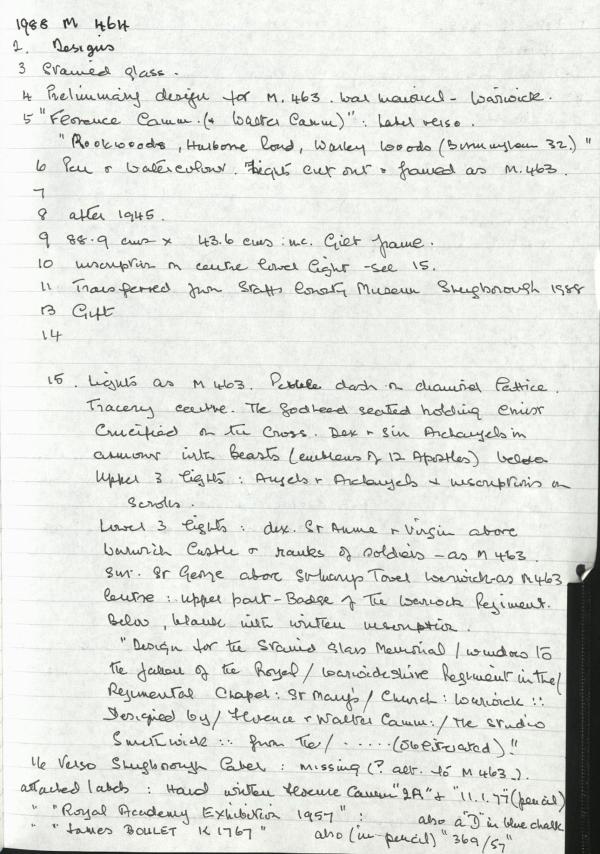 1988 M 464
2. Designs
3 Stained glass.
4 Preliminary design for M.463. War memorial - Warwick.
5 "Florence Camm (+ Walter Camm)": Label verso.
"Rookwoods, Harborne Road, Warley Woods (Birmingham 32.)"
6 Pen & watercolour. Lights cut out & framed as M.463.
7
8 after 1945.
9 88.9 cms x 43.6 cms inc. Gilt frame.
10 inscription on centre lower light - see 15.
11 Transferred from Staffs County Museum Shugborough 1988
13 Gift
14
15. Lights as M 463. Pebble dash on diamond lattice.
Tracery centre. The Godhead seated holding Christ
Crucified on the Cross. Dex + Sin Archangels in
armour with Beasts (emblems of 12 Apostles) below
Upper 3 lights: Angels + Archangels + inscriptions on
Scrolls.
Lower 3 lights: dex. St Anne + Virgin above
Warwick Castle & ranks of soldiers - as M 463.
Sin. St George above Tower Warwick - as M463
Centre: Upper part - Badge of The Warwick Regiment.
Below, blank with written inscription.
"Design for the Stained Glass Memorial / windows to
the fallen of the Royal / Warwickshire Regiment in the /
Regimental Chapel: St Mary's / Church: Warwick ::
Designed by / Florence + Walter Camm: / The Studio
Smethwick :: from The / ..... (obliterated)."
16 Verso Shugborough Label: missing (? att. to M 463.).
attached labels: Hand written Florence Camm "2A" + "11.1.77" (pencil)
" "Royal Academy Exhibition 1957": also a "D" in blue chalk
" "James BOULET K1767" also (in pencil) "369/57"